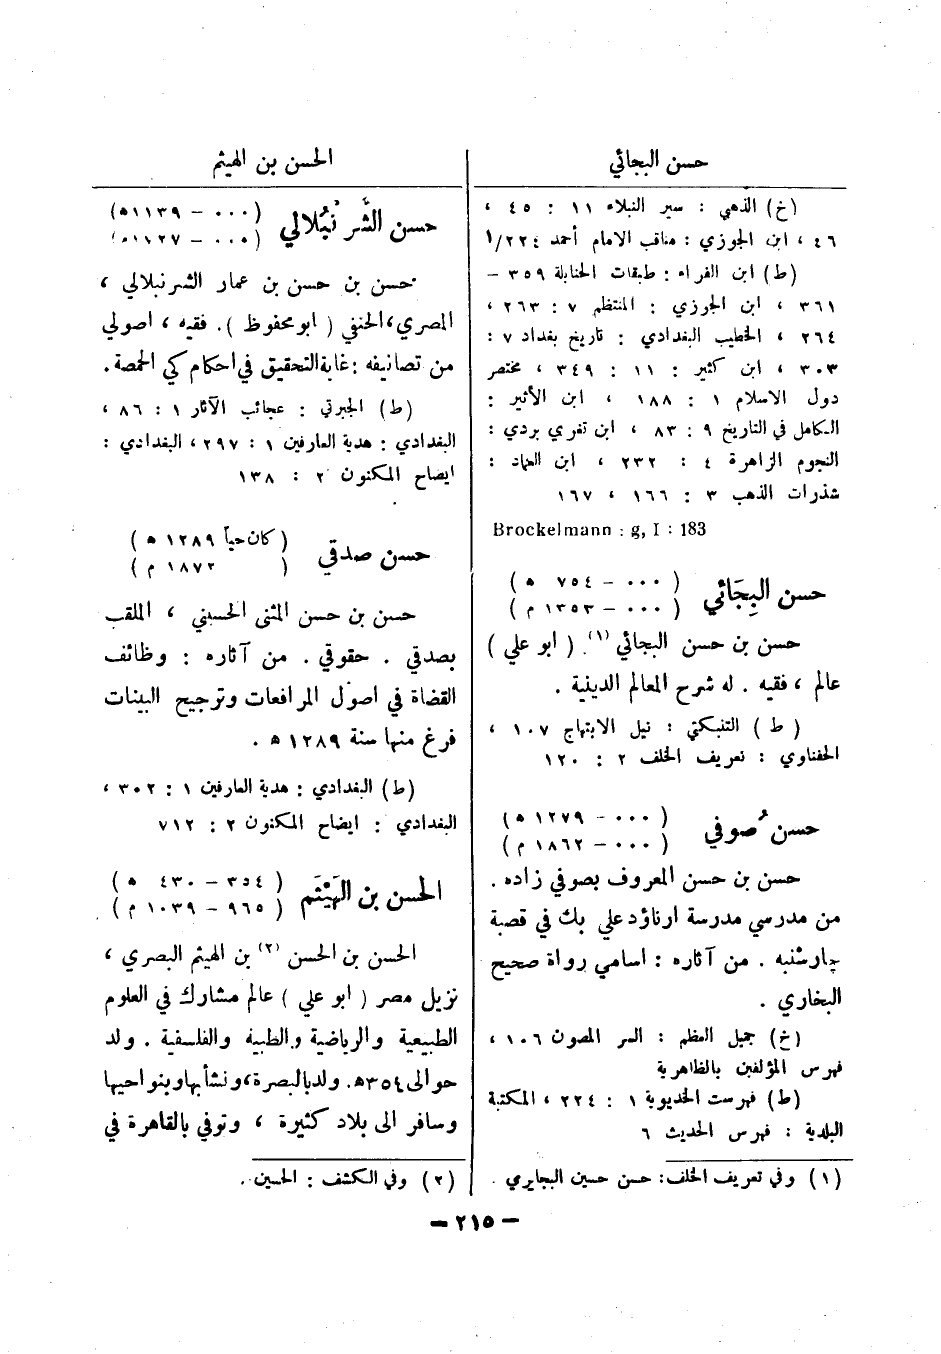 حسن البجائي
(خ) الذهبي : سير النبلاء ١١ : ٤٥ ،
٤٦ ، ابن الجوزي : مناقب الامام أحمد ١/٢٢٤
(ط) ابن الفراء : طبقات الحنابلة ٣٥٩ –
٣٦١ ، ابن الجوزي : المنتظم ٧ : ٢٦٣ ،
٢٦٤ ، الخطيب البغدادي : تاريخ بغداد ٧ :
٣٠٣ ، ابن كثير : ١١ : ٣٤٩ ، مختصر
دول الاسلام ١ : ١٨٨ ، ابن الأثير :
الكامل في التاريخ ٩ : ٨٣ ، ابن تغري بردي :
النجوم الزاهرة ٤ : ٢٣٢ ، ابن العماد :
شذرات الذهب ٣ : ١٦٦ ، ١٦٧
Brockelmann : g, I : 183
حسن البِجَائي
( ٠٠٠ – ٧٥٤ ه )
( ٠٠٠ – ١٣٥٣ م )
حسن بن حسن البجائي (١) . ( ابو علي )
عالم ، فقيه . له شرح المعالم الدينية .
( ط ) التنبكتي : نيل الابتهاج ١٠٧ ،
الحفناوي : تعريف الخلف ٢ : ١٢٠
حسن صُوفي
( ٠٠٠ – ١٢٧٩ ه )
( ٠٠٠ – ١٨٦٢ م )
حسن بن حسن المعروف بصوفي زاده .
من مدرسي مدرسة ارناؤد علي بك في قصبة
چارشنبه . من آثاره : اسامي رواة صحيح
البخاري .
(خ) جميل العظم : السر المصون ١٠٦ ،
فهرس المؤلفين بالظاهرية
(ط) فهرست الخديوية ١ : ٢٢٤ ، المكتبة
البلدية : فهرس الحديث ٦
(١) وفي تعريف الخلف : حسن حسين البجايري .
الحسن بن الهيثم
حسن الشُّرُنْبُلالي
( ٠٠٠ – ١١٣٩ ه)
( ٠٠٠ – ١٧٢٧ م)
حسن بن حسن بن عمار الشرنبلالي ،
المصري ، الحنفي ( ابو محفوظ ). فقيه ، اصولي
من تصانيفه : غاية التحقيق في احكام كي الحمصة .
(ط) الجبرتي : عجائب الآثار ١ : ٨٦ ،
البغدادي : هدية العارفين ١ : ٢٩٧ ، البغدادي :
ايضاح المكنون ٢ : ١٣٨
حسن صدقي
( كان حياً ١٢٨٩ ه )
( ١٨٧٢ م )
حسن بن حسن المثنى الحسيني ، الملقب
بصدقي . حقوقي . من آثاره : وظائف
القضاة في اصول المرافعات وترجيح البينات
فرغ منها سنة ١٢٨٩ ه .
(ط) البغدادي : هدية العارفين ١ : ٣٠٢ ،
البغدادي : ايضاح المكنون ٢ : ٧١٢
الحسن بن الهَيْثَم
( ٣٥٤ – ٤٣٠ ه )
( ٩٦٥ – ١٠٣٩ م )
الحسن بن الحسن (٢) بن الهيثم البصري ،
نزيل مصر ( ابو علي ) عالم مشارك في العلوم
الطبيعية والرياضية والطبية والفلسفية . ولد
حوالى ٣٥٤ ه. ولد بالبصرة، ونشأ بها وبنواحيها
وسافر الى بلاد كثيرة ، وتوفي بالقاهرة في
(٢) وفي الكشف : الحسين .
– ٢١٥ –